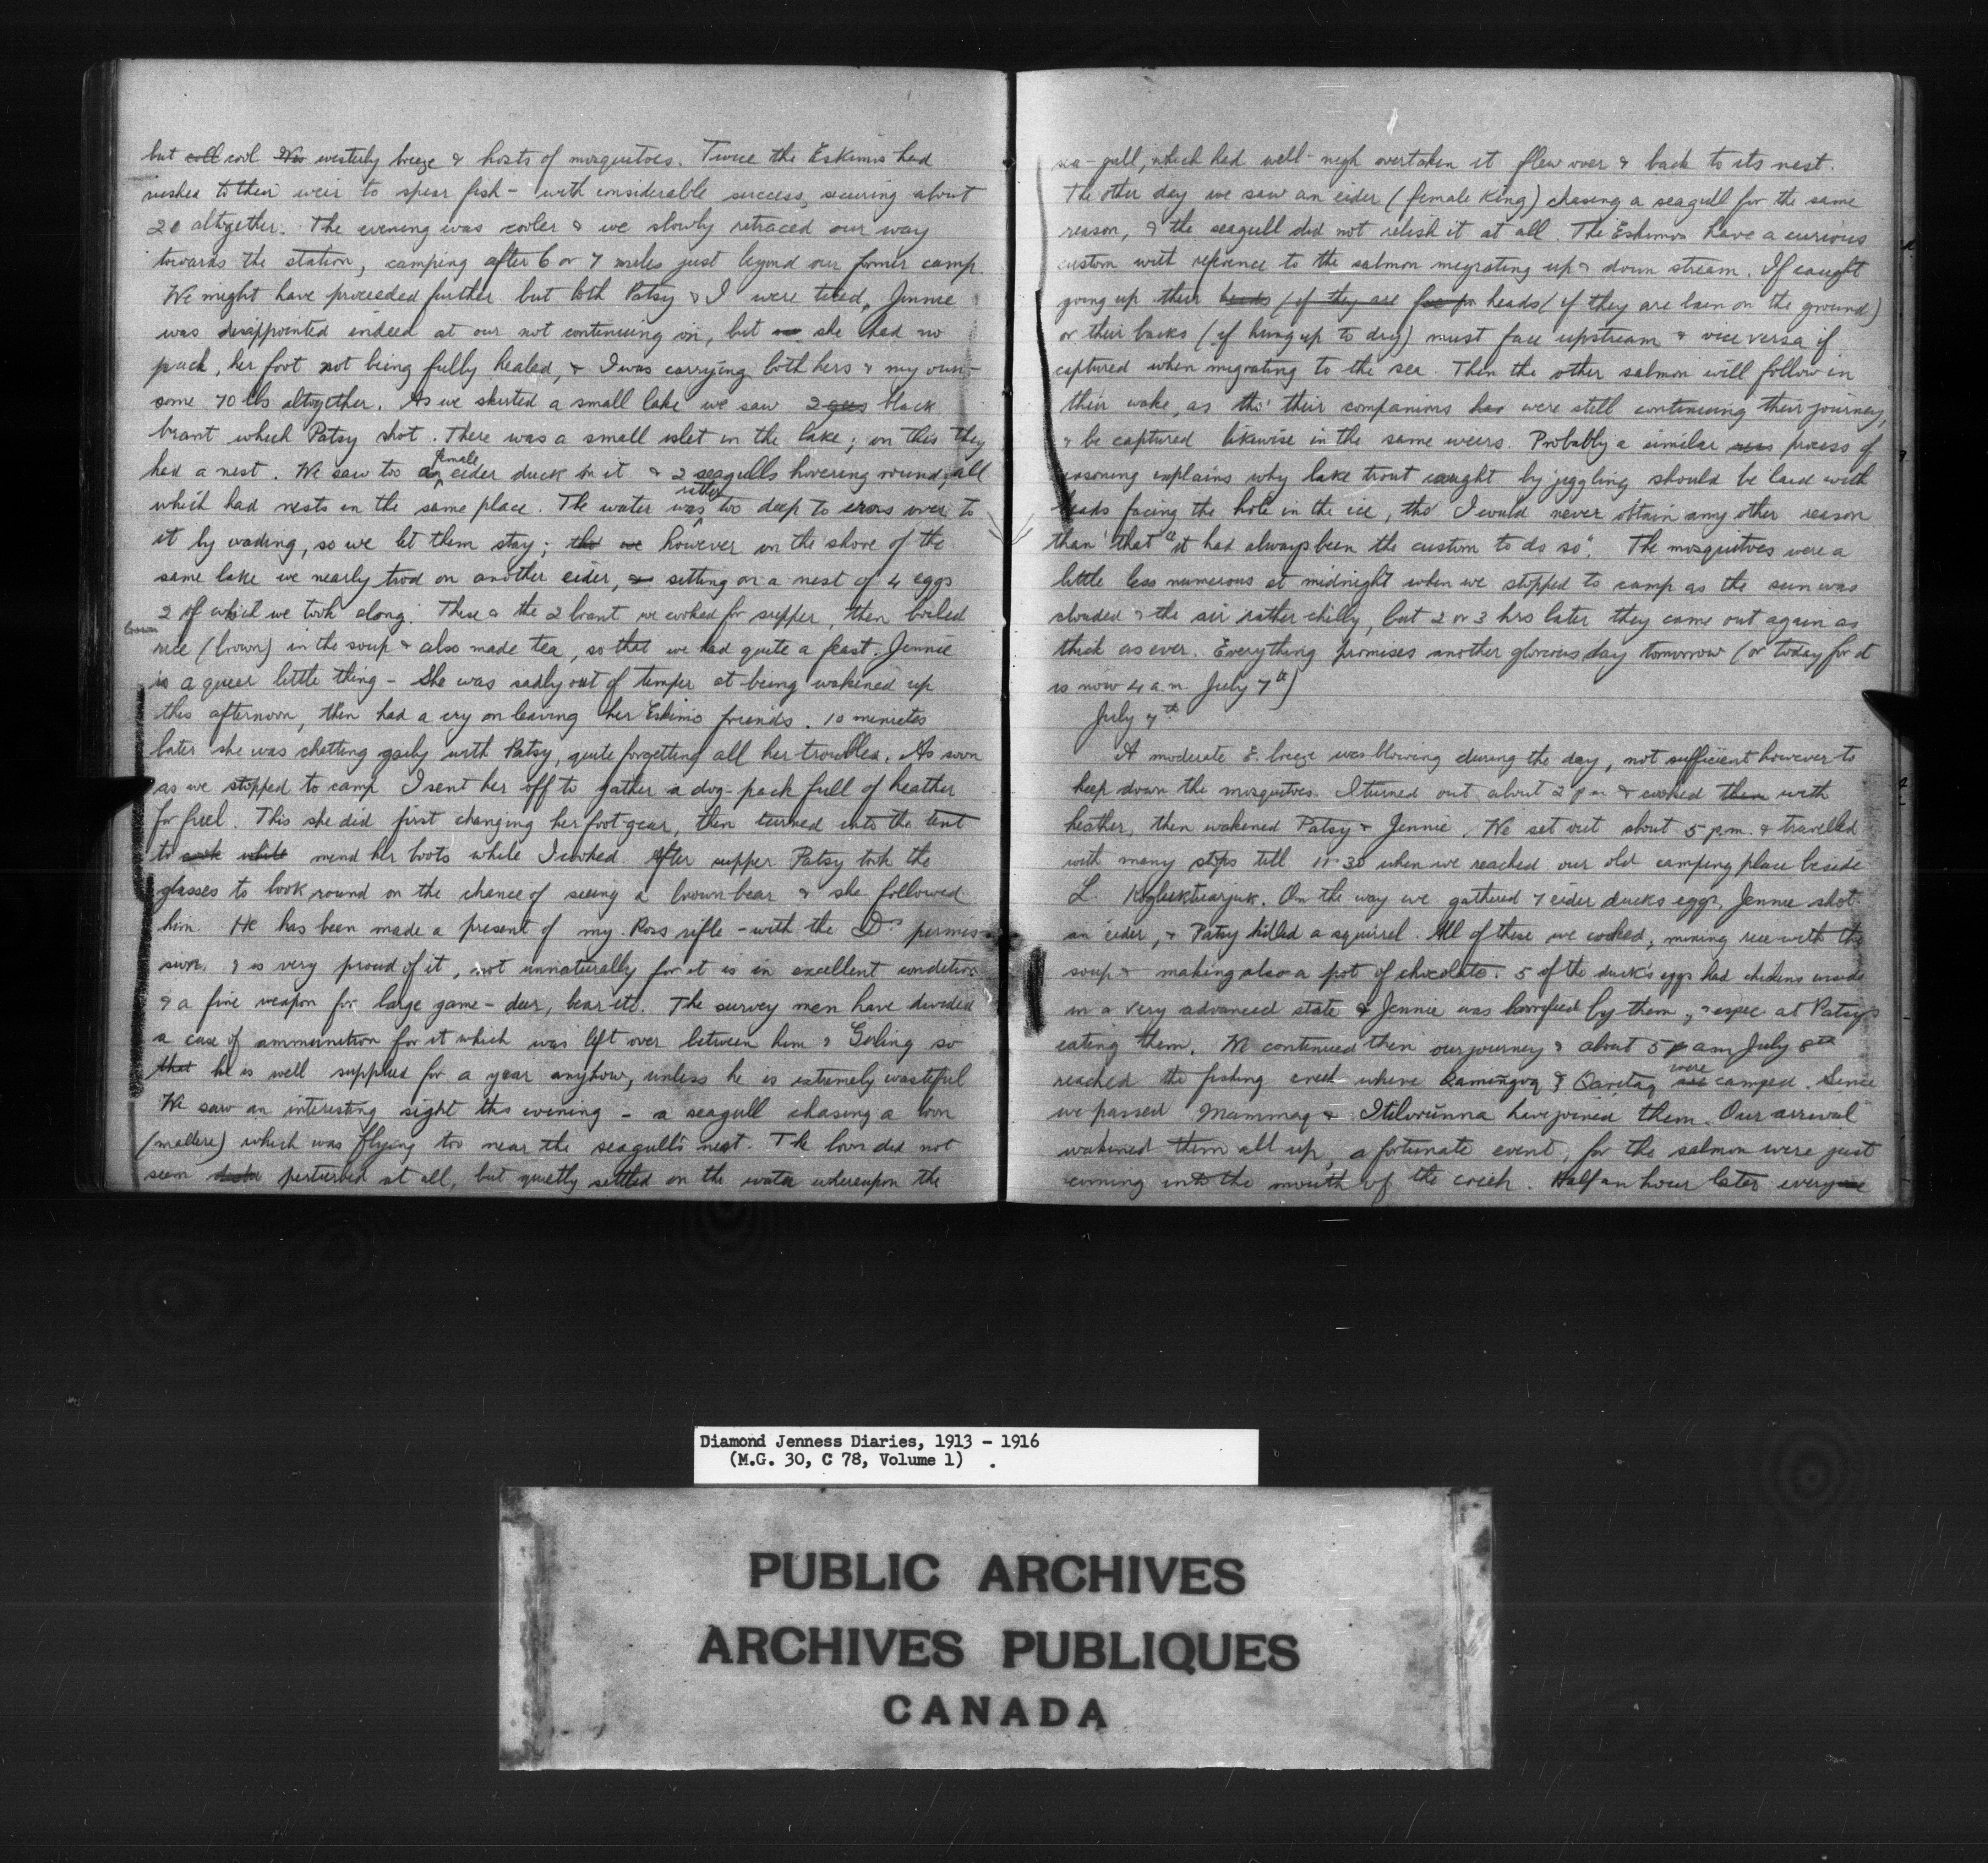 but coll cool Nor westerly breeze & hosts of mosquitoes. Twice the Eskimos had
rushed to their weir to spear fish - with considerable success, securing about
20 altogether. The evening was cooler & we slowly retraced our way
towards the station, camping after 6 or 7 miles just beyond our former camp.
We might have proceeded further but both Patsy & I were tired. Jennie
was disappointed indeed at our not continuing on, but she had no
pack, her foot not being fully healed, & I was carrying both hers & my own -
some 70 lbs altogether. As we skirted a small lake we saw 2 gees black
brant which Patsy shot. There was a small islet in the lake; on this they
had a nest. We saw too a female eider duck on it & 2 seagulls hovering round, all
which had nests in the same place. The water was rather too deep to cross over to
it by wading, so we let them stay; tho' we however on the shore of the
same lake we nearly trod on another eider, & sitting on a nest of 4 eggs
2 of which we took along. These & the 2 brant we cooked for supper, then boiled
brown
rice (brown) in the soup & also made tea, so that we had quite a feast. Jennie
is a queer little thing - She was sadly out of temper at being wakened up
this afternoon, then had a cry on leaving her Eskimo friends. 10 minutes
later she was chatting gaily with Patsy, quite forgetting all her troubles. As soon
as we stopped to camp I sent her off to gather a dog-pack full of heather
for fuel. This she did first changing her foot-gear, then turned into the tent
to cook while mend her boots while I cooked. After supper Patsy took the
glasses to look round on the chance of seeing a brown bear & she followed
him. He has been made a present of my Ross rifle - with the Drs permis-
sion, & is very proud of it, not unnaturally for it is in excellent condition
& a fine weapon for large game - deer, bear etc. The survey men have divided
a case of ammunition for it which was left over between him & Girling so
that he is well supplied for a year anyhow, unless he is extremely wasteful
We saw an interesting sight this evening - a seagull chasing a loon
(mallere) which was flying too near the seagull's nest. The loon did not
seem perturbed at all, but quietly settled on the water whereupon the
sea-gull, which had well-nigh overtaken it flew over & back to its nest.
The other day we saw an eider (female King) chasing a seagull for the same
reason, & the seagull did not relish it at all. The Eskimos have a curious
custom with reference to the salmon megrating up & down stream. If caught
going up their heads (if they are face for heads (if they are lain on the ground)
or their backs (if hung up to dry) must face upstream & vice versa if
captured when migrating to the sea. Then the other salmon will follow in
their wake, as tho' their companions had were still continuing their journey,
& be captured likewise in the same weirs. Probably a similar reas process of
reasoning explains why lake trout caught by jiggling should be laid with
heads facing the hole in the ice, tho' I would never obtain any other reason
than that "it had always been the custom to do so". The mosquitoes were a
little less numerous at midnight when we stopped to camp as the sun was
clouded & the air rather chilly, but 2 or 3 hrs later they came out again as
thick as ever. Everything promises another glorious day tomorrow (or today for it
is now 4 a.m. July 7th)
July 7th
A moderate E. breeze was blowing during the day, not sufficient however to
keep down the mosquitoes. I turned out about 2 p.m. & cooked them with
heather, then wakened Patsy & Jennie. We set out about 5 p.m. & travelled
with many stops till 11.30 when we reached our old camping place beside
L. Kogluktuarjuk. On the way we gathered 7 eider ducks eggs, Jennie shot
an eider, & Patsy killed a squirrel. All of these we cooked, mixing rice with the
soup & making also a pot of chocolate. 5 of the duck's eggs had chickens inside
in a very advanced state & Jennie was horrified by them, & espec at Patsy's
eating them. We continued then our journey & about 5 p am July 8th
reached the fishing creek where Qamiŋgoq & Qaritaq were camped. Since
we passed Mammaq & Itilorunna have joined them. Our arrival
wakened them all up, a fortunate event, for the salmon were just
coming into the mouth of the creek. Half an hour later everyone
Diamond Jenness Diaries, 1913 - 1916
(M.G. 30, C 78, Volume 1) .
PUBLIC ARCHIVES
ARCHIVES PUBLIQUES
CANADA